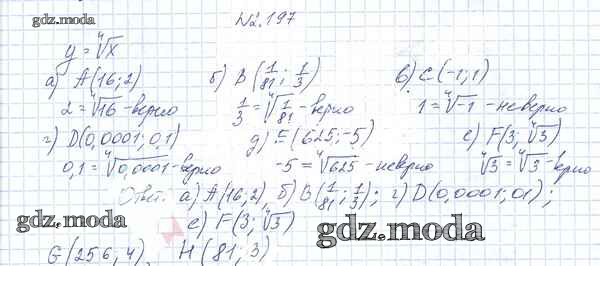 gdz.moda
№2.197
y = ⁴√x
а) A(16; 2) б) B(1/81; 1/3) в) C(-1; 1)
2 = ⁴√16 - верно 1/3 = ⁴√1/81 - верно 1 = ⁴√-1 - неверно
г) D(0,0001; 0,1) д) E(625; -5) е) F(3; ⁴√3)
0,1 = ⁴√0,0001 - верно -5 = ⁴√625 - неверно ⁴√3 = ⁴√3 - верно
Ответ: а) A(16; 2), б) B(1/81; 1/3); г) D(0,0001; 0,1);
gdz.moda е) F(3; ⁴√3) gdz.moda
G(256; 4), H(81; 3)